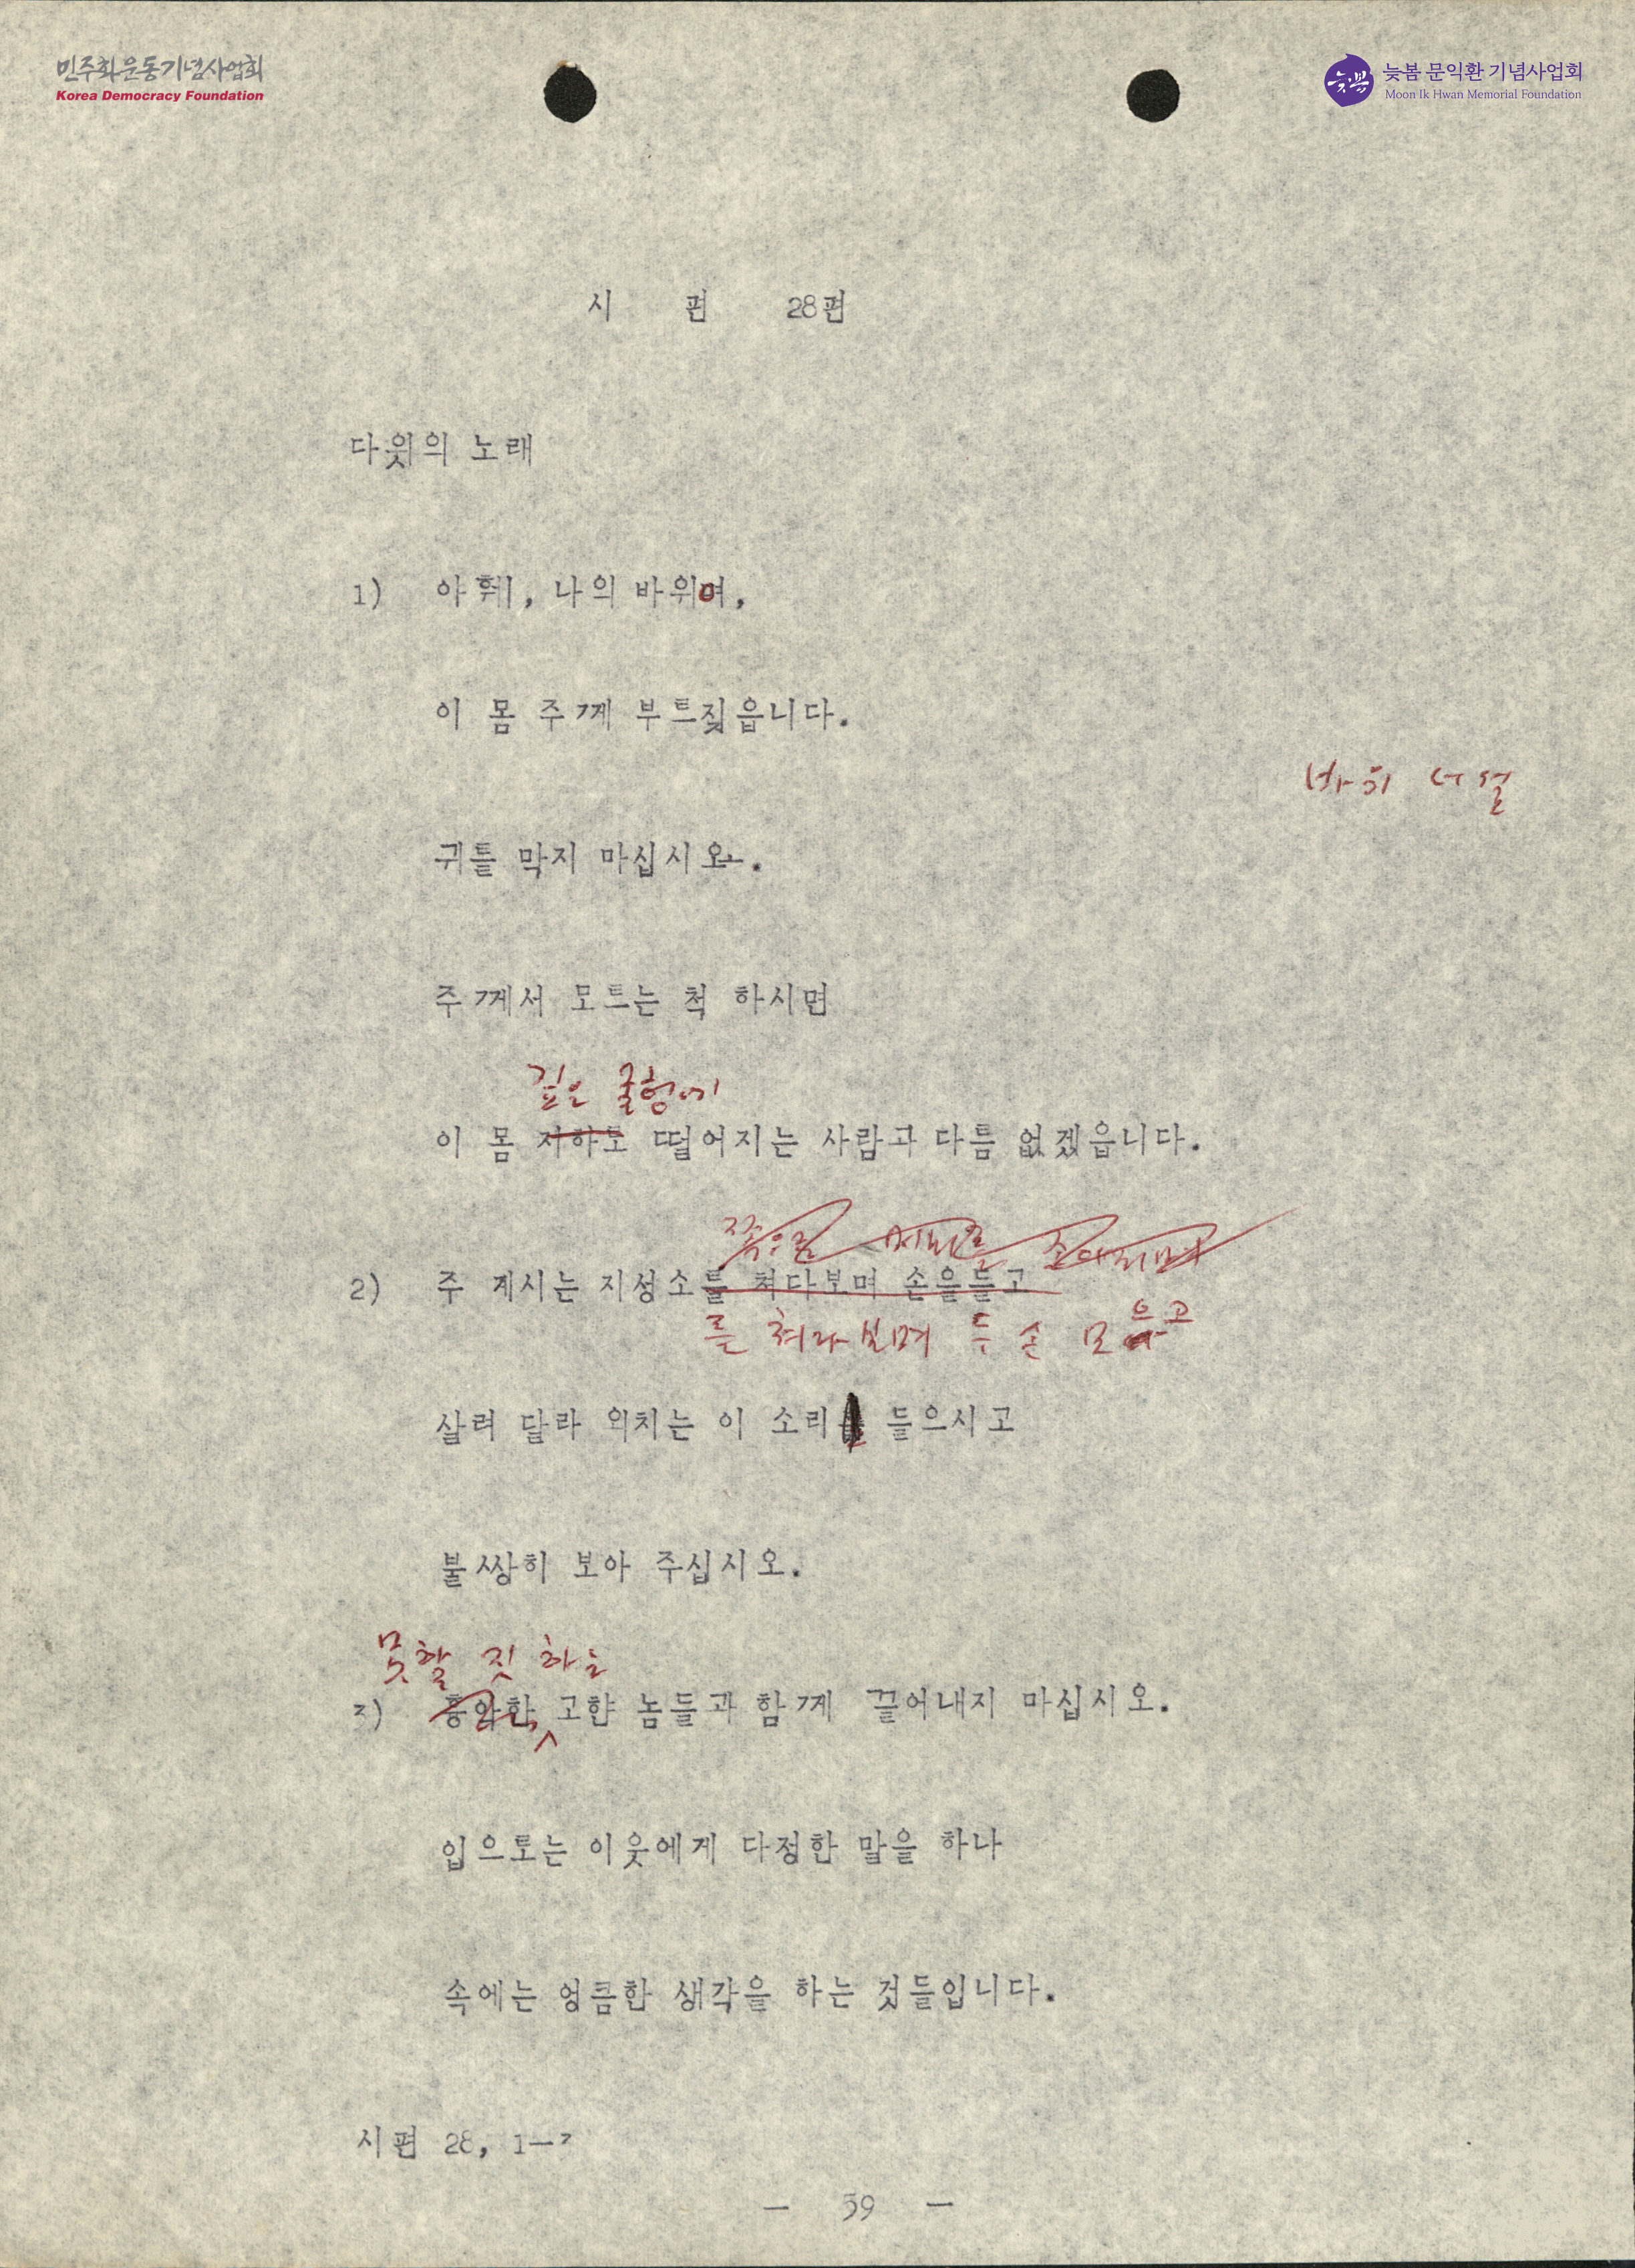 민주화운동기념사업회
Korea Democracy Foundation
늦봄 문익환 기념사업회
Moon Ik Hwan Memorial Foundation
시 편 28편
다윗의 노래
1) 아훼, 나의 바위여,
이 몸 주께 부르짖읍니다.
바위 너설
귀를 막지 마십시오.
주께서 모르는 척 하시면
깊은 굴헝에
이 몸 지하로 떨어지는 사람과 다름 없겠읍니다.
쪽으로
2) 주 계시는 지성소를 쳐다보며 손을들고
를 쳐다보며 두 손 모으고
살려 달라 외치는 이 소리를 들으시고
불쌍히 보아 주십시오.
못할 짓 하는
3) 흉악한 고얀 놈들과 함께 끌어내지 마십시오.
입으로는 이웃에게 다정한 말을 하나
속에는 엉큼한 생각을 하는 것들입니다.
시편 28, 1—3
— 59 —